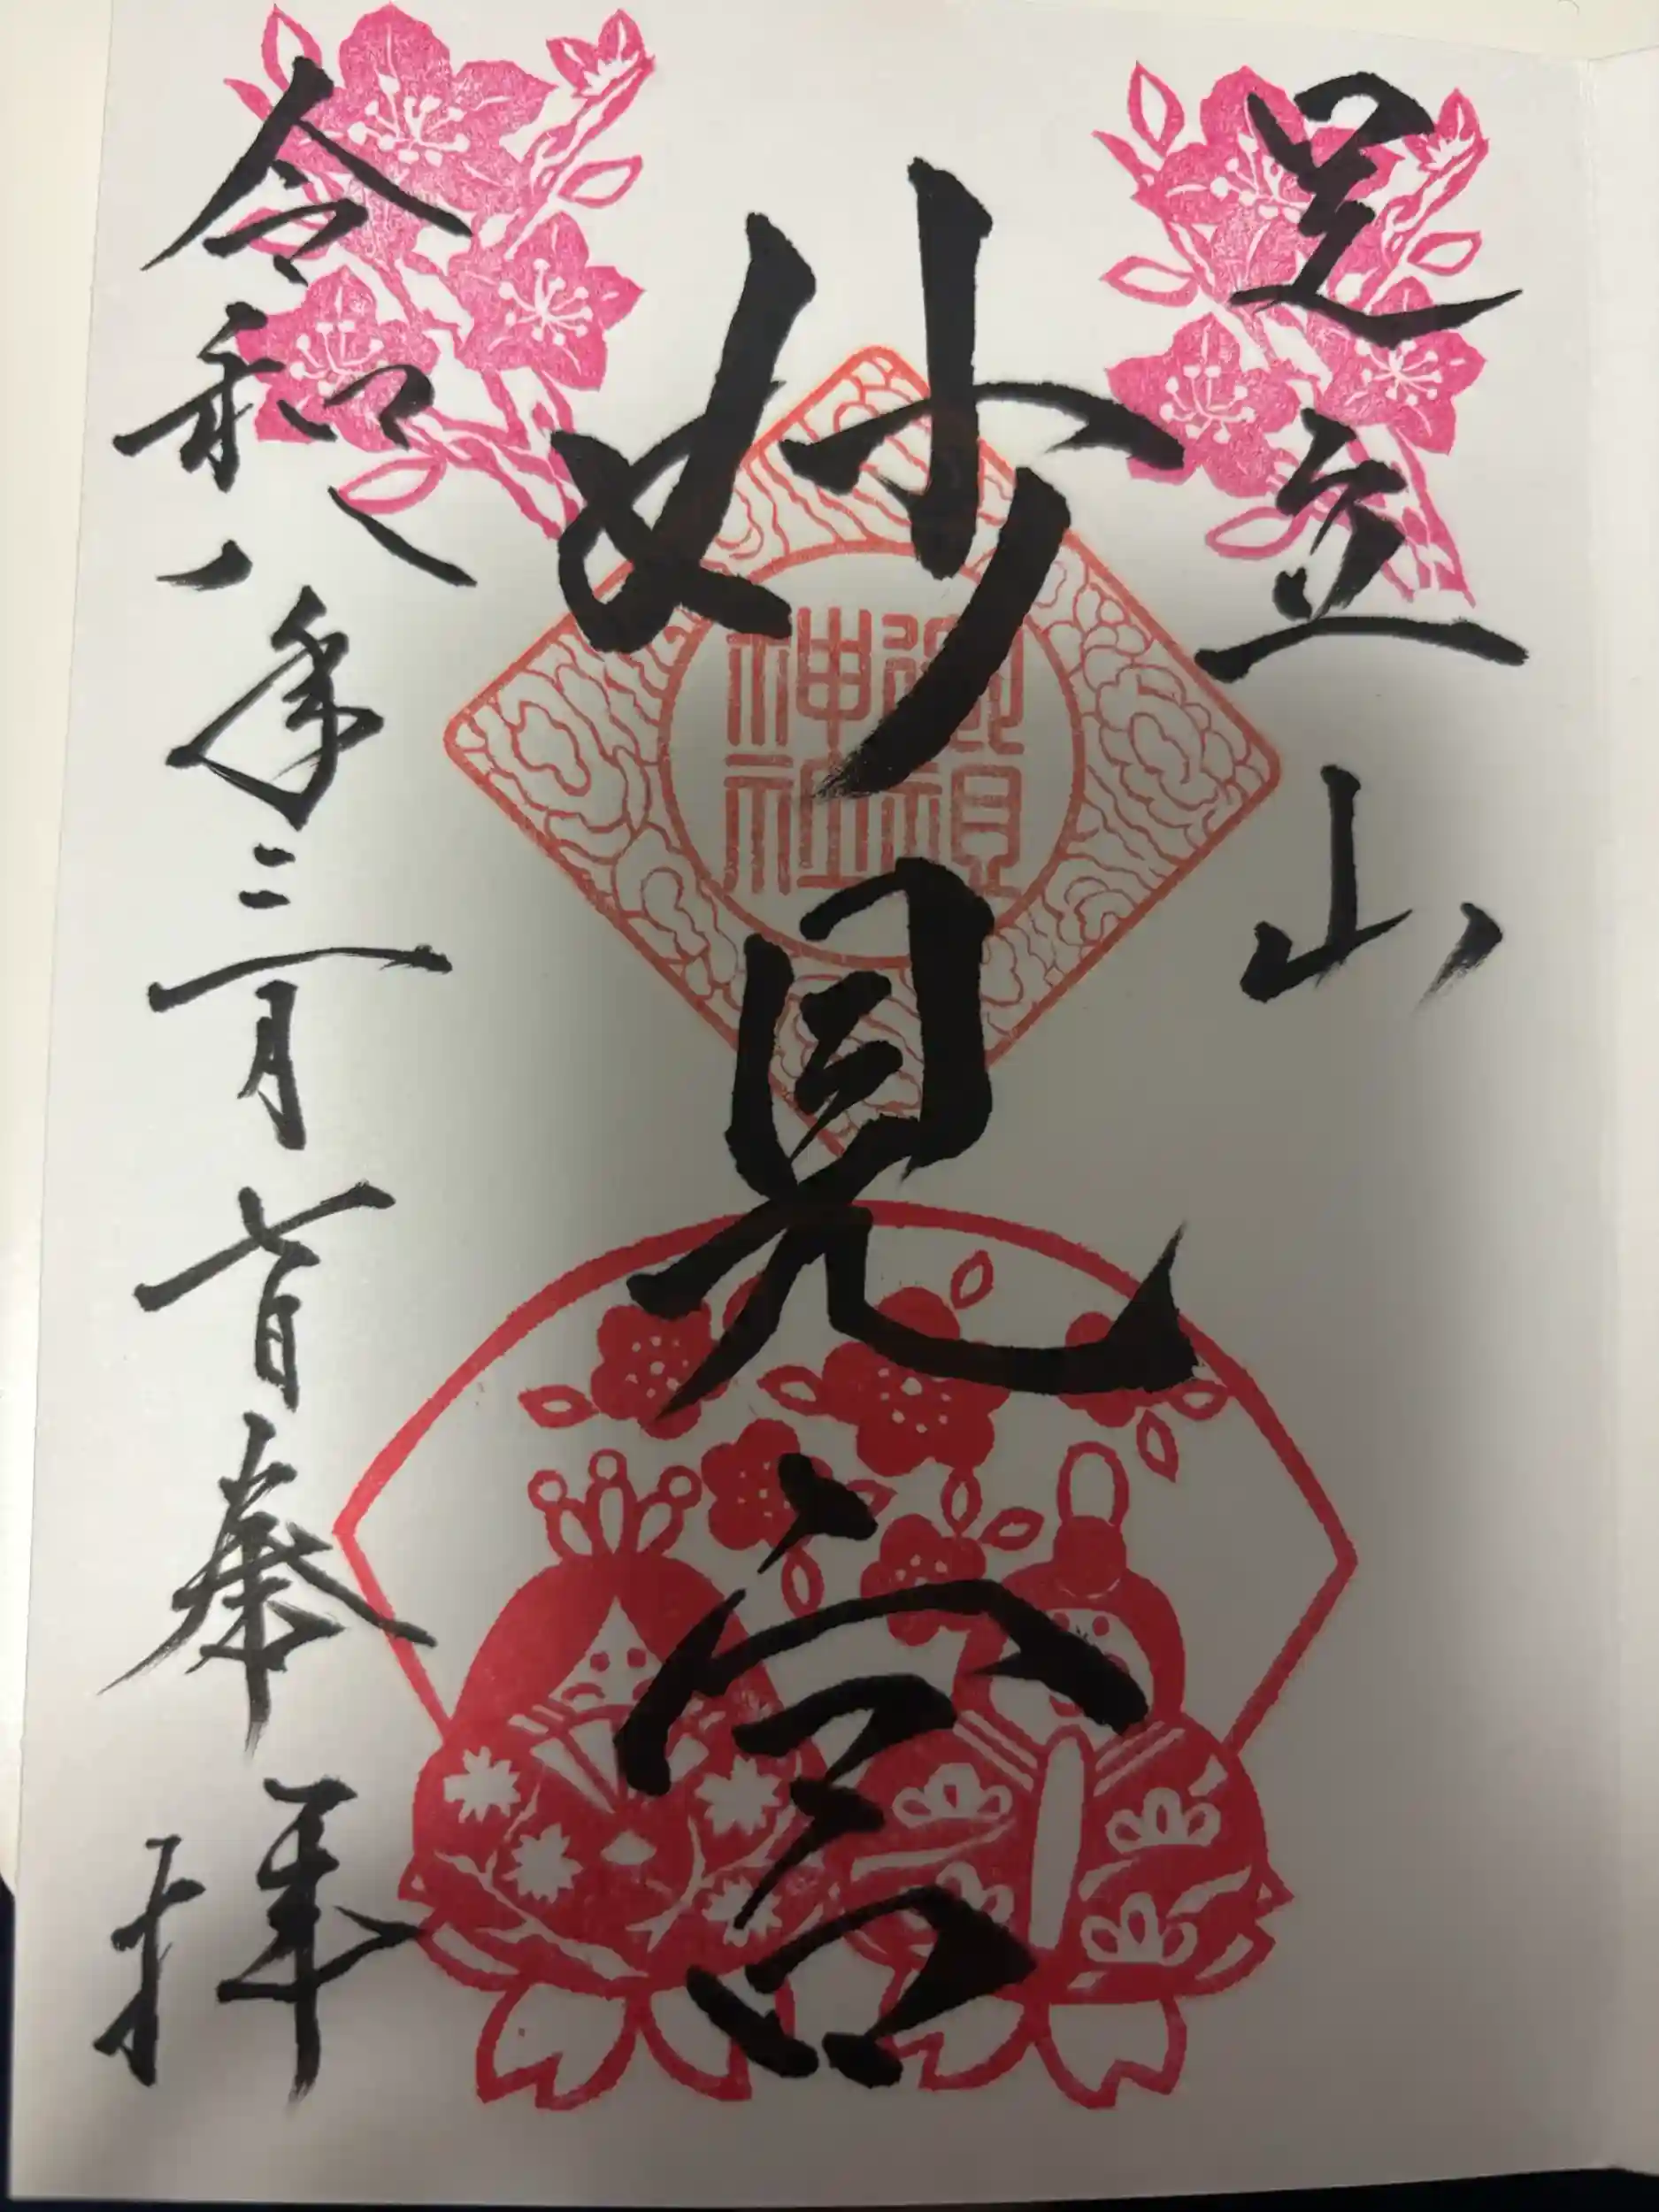 足立山
妙見宮
御祖
神社
令和八年三月七日奉拝